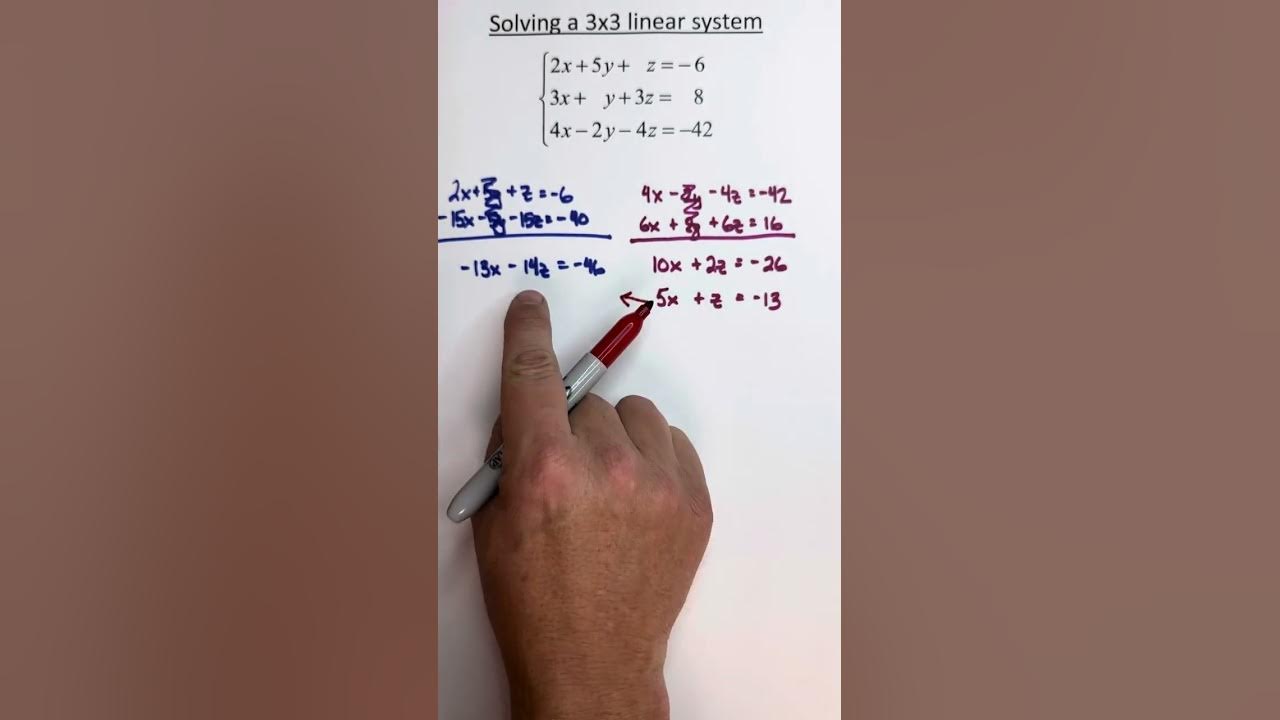 Solving a 3x3 linear system
2x+5y+ z=-6
3x+ y+3z= 8
4x-2y-4z=-42
2x+5y+z=-6
-15x-5y-15z=-40
-13x-14z=-46
4x-2y-4z=-42
6x+2y+6z=16
10x+2z=-26
5x+z=-13